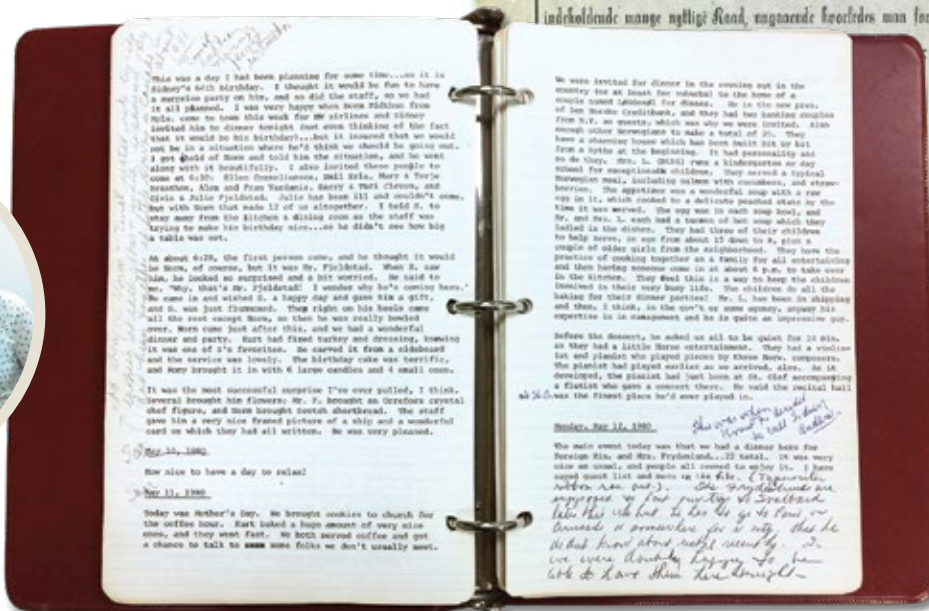 indeholdende mange nyttige Raad, angaaende hvorledes man
This was a day I had been planning for some time...as it is
Sidney's 64th birthday. I thought it would be fun to have
a surprise party on him, and so did the staff, so we had
it all planned. I was very happy when Norm Midthun from
Mpls. came to town this week for NW airlines and Sidney
invited him to dinner tonight (not even thinking of the fact
that it would be his birthday)...but it insured that we would
not be in a situation where he'd think we should be going out.
I got ahold of Norm and told him the situation, and he went
along with it beautifully. I also invited these people to
come at 6:30:
Braathen, Alem and Fran
Olvin & Julie Fjeldstad. Julie has been ill and couldn't come,
but with Norm that made 12 of us altogether. I told S. to
stay away from the kitchen & dining room as the staff was
trying to make his birthday nice...so he didn't see how big
a table was set.
At about 6:25, the first person came, and he thought it would
be Norm, of course, but it was Mr. Fjeldstad. When S. saw
him, he looked so surprised and a bit worried. He said to
me, "Why, that's Mr. Fjeldstad! I wonder why he's coming here."
He came in and wished S. a happy day and gave him a gift,
and S. was just flummoxed. Then right on his heels came
all the rest except Norm, so then he was really bowled
over. Norm came just after this, and we had a wonderful
dinner and party. Kurt had fixed turkey and dressing, knowing
it was one of S's favorites. He carved it from a sideboard
and the service was lovely. The birthday cake was terrific,
and Romy brought it in with 6 large candles and 4 small ones.
It was the most successful surprise I've ever pulled, I think.
Several brought him flowers; Mr. F. brought an Orrefors crystal
chef figure, and Norm brought Scotch shortbread. The staff
gave him a very nice framed picture of a ship and a wonderful
card on which they had all written. He was very pleased.
May 10, 1980
How nice to have a day to relax!
May 11, 1980
Today was Mother's Day. We brought cookies to church for
the coffee hour. Kurt baked a huge amount of very nice
ones, and they went fast. We both served coffee and got
a chance to talk to some folks we don't usually meet.
We were invited for dinner in the evening out in the
country (or at least far suburbs) to the home of a
couple named for dinner. He is the new pres.
of Den Norske Creditbank, and they had two banking couples
from N.Y. as guests, which was why we were invited. Also
enough other Norwegians to make a total of 20. They
have a charming house which has been built bit by bit
from a hytte at the beginning. It had personality and
so do they. Mrs. L. runs a kindergarten or day
school for exceptional children. They served a typical
Norwegian meal, including salmon with cucumbers, and straw-
berries. The appetizer was a wonderful soup with a raw
egg in it, which cooked to a delicate poached state by the
time it was served. The egg was in each soup bowl, and
Mr. and Mrs. L. each had a tureen of hot soup which they
ladled in the dishes. They had three of their children
to help serve, in age from about 15 down to 8, plus a
couple of older girls from the neighborhood. They have the
practice of cooking together as a family for all entertaining
and then having someone come in at about 6 p.m. to take over
in the kitchen. They feel this is a way to keep the children
involved in their very busy life. The children do all the
baking for their dinner parties! Mr. L. has been in shipping
and then, I think, in the gov't or some agency, anyway his
expertise is in management and he is quite an impressive guy.
Before the dessert, he asked us all to be quiet for 10 min.
as they had a little Norse entertainment. They had a violin-
ist and pianist who played pieces by three Norw. composers.
The pianist had played earlier as we arrived, also. As it
developed, the pianist had just been at St. Olaf accompanying
a flutist who gave a concert there. He said the recital hall
was the finest place he'd ever played in.
She was when
Knud
to call Sidney
Monday, May 12, 1980
The main event today was that we had a dinner here for
Foreign Min. and Mrs. Frydenlund...22 total. It was very
nice as usual, and people all seemed to enjoy it. I have
saved guest list and menu in the file. (Typewriter
ribbon ran out). The Frydenlunds are
supposed to our trip to Svalbard
later this but he has to go to Paris or
Brussels or somewhere for a mtg. that he
didn't know about until recently. So
we were doubly happy to be
able to have them here tonight.